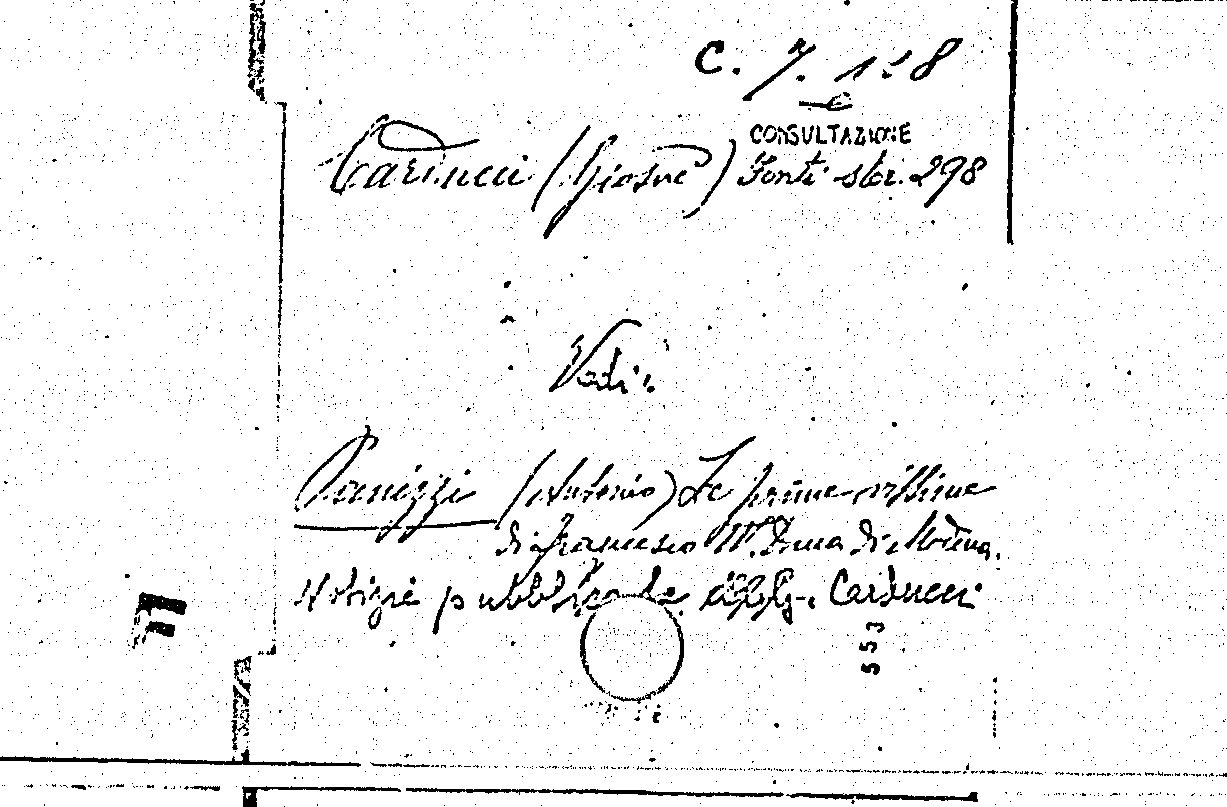 C. 7. 128
CONSULTAZIONE
Carducci (Giosuè) Fonti stor. 298
Vedi:
Panizzi (Antonio) Le prime vittime
di Francesco IV. Duca di Modena.
Notizie pubblicate da G. Carducci
553